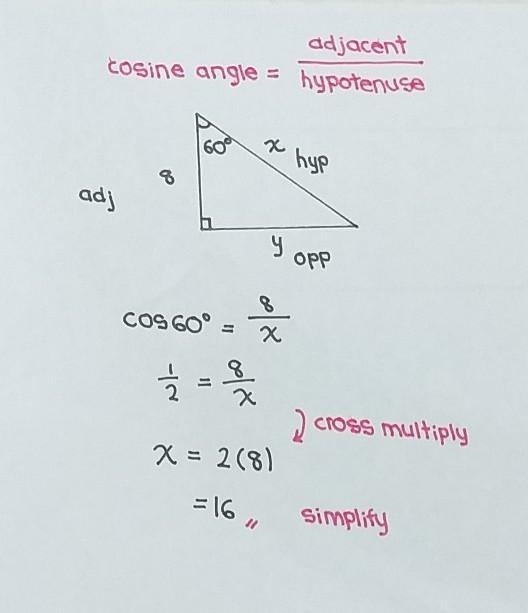 cosine angle = adjacent / hypotenuse
60°
x hyp
8
adj
y opp
cos60° = 8/x
1/2 = 8/x
cross multiply
x = 2(8)
=16 〃 simplify